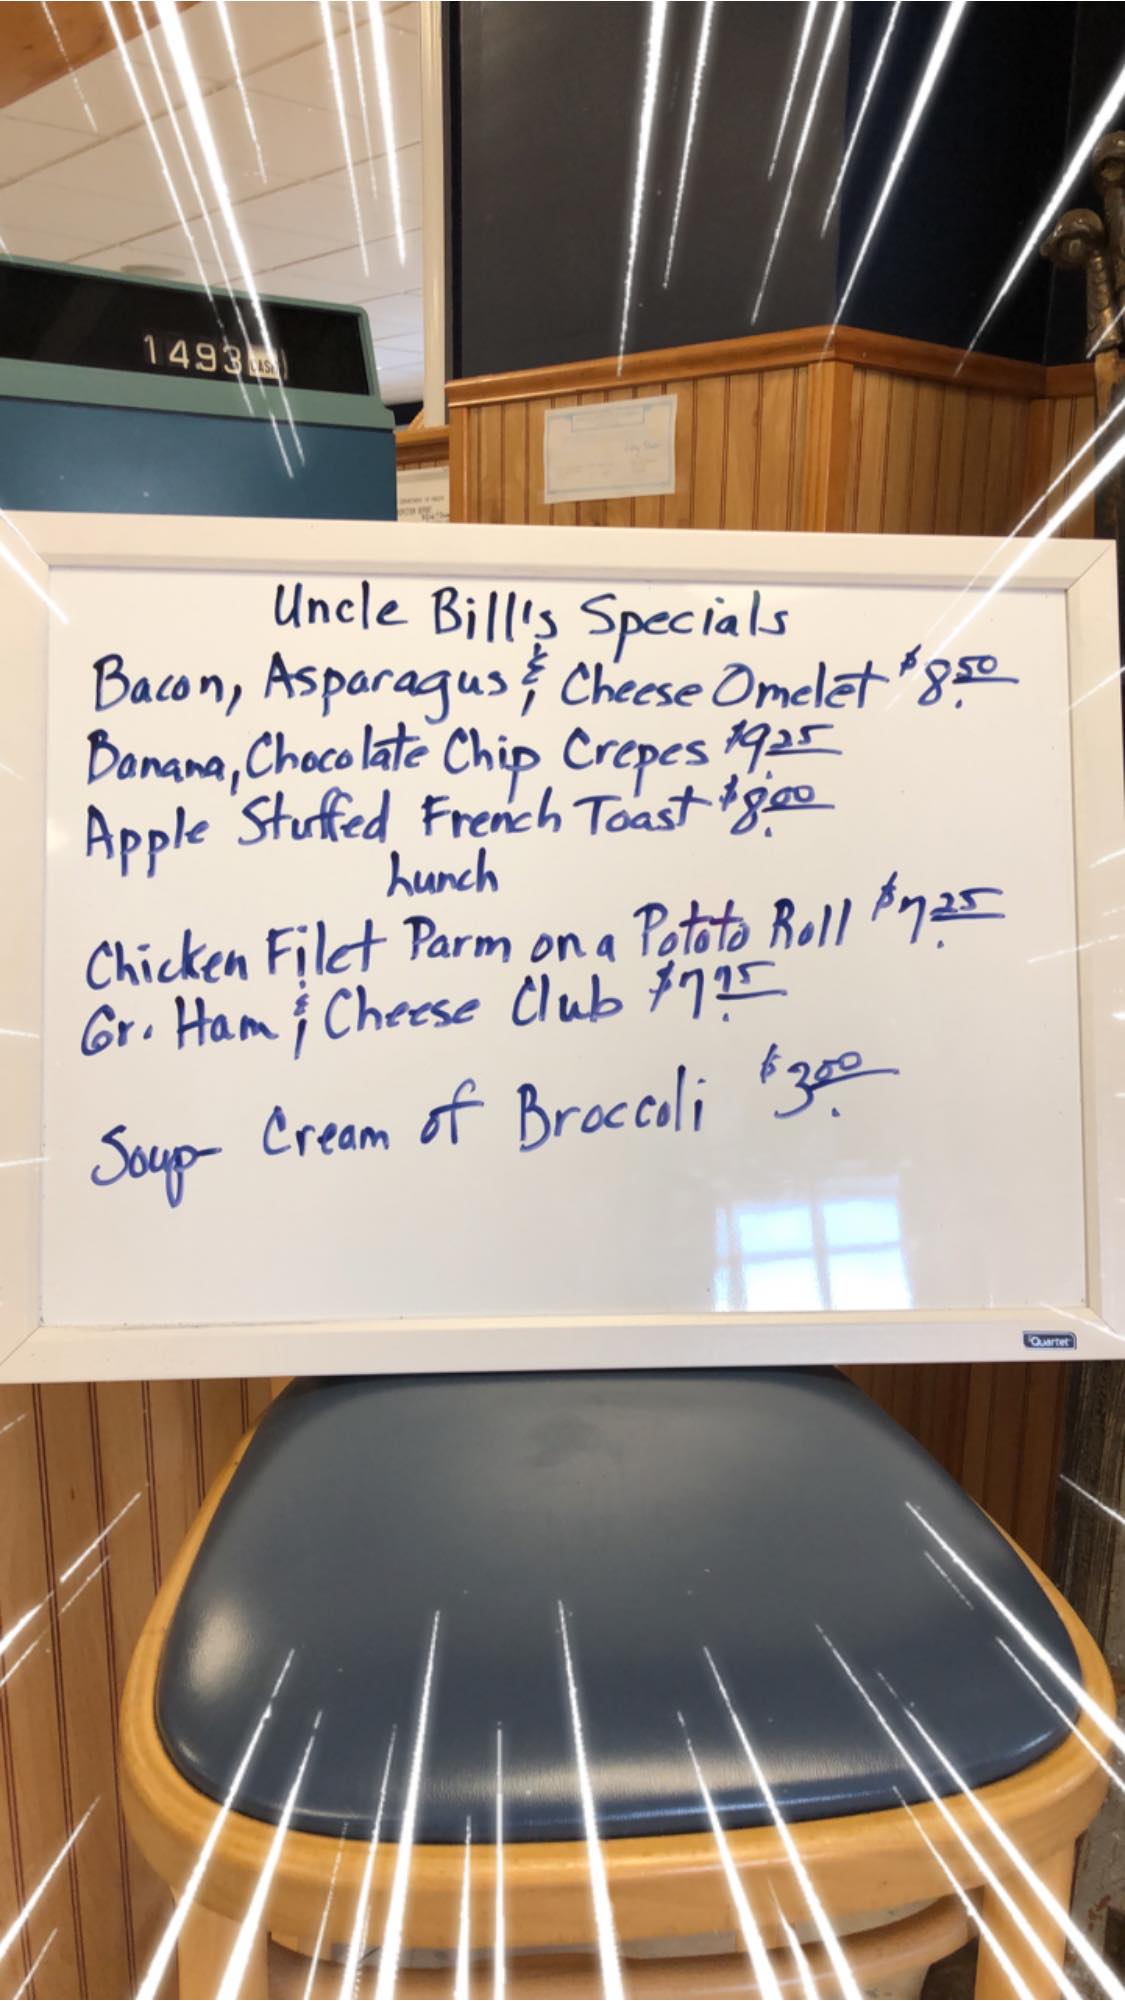 1493
CASH
Uncle Bill's Specials
Bacon, Asparagus & Cheese Omelet $8.50
Banana, Chocolate Chip Crepes $9.25
Apple Stuffed French Toast $8.00
Lunch
Chicken Filet Parm on a Pototo Roll $7.25
Gr. Ham & Cheese Club $7.95
Soup- Cream of Broccoli $3.00
Quartet